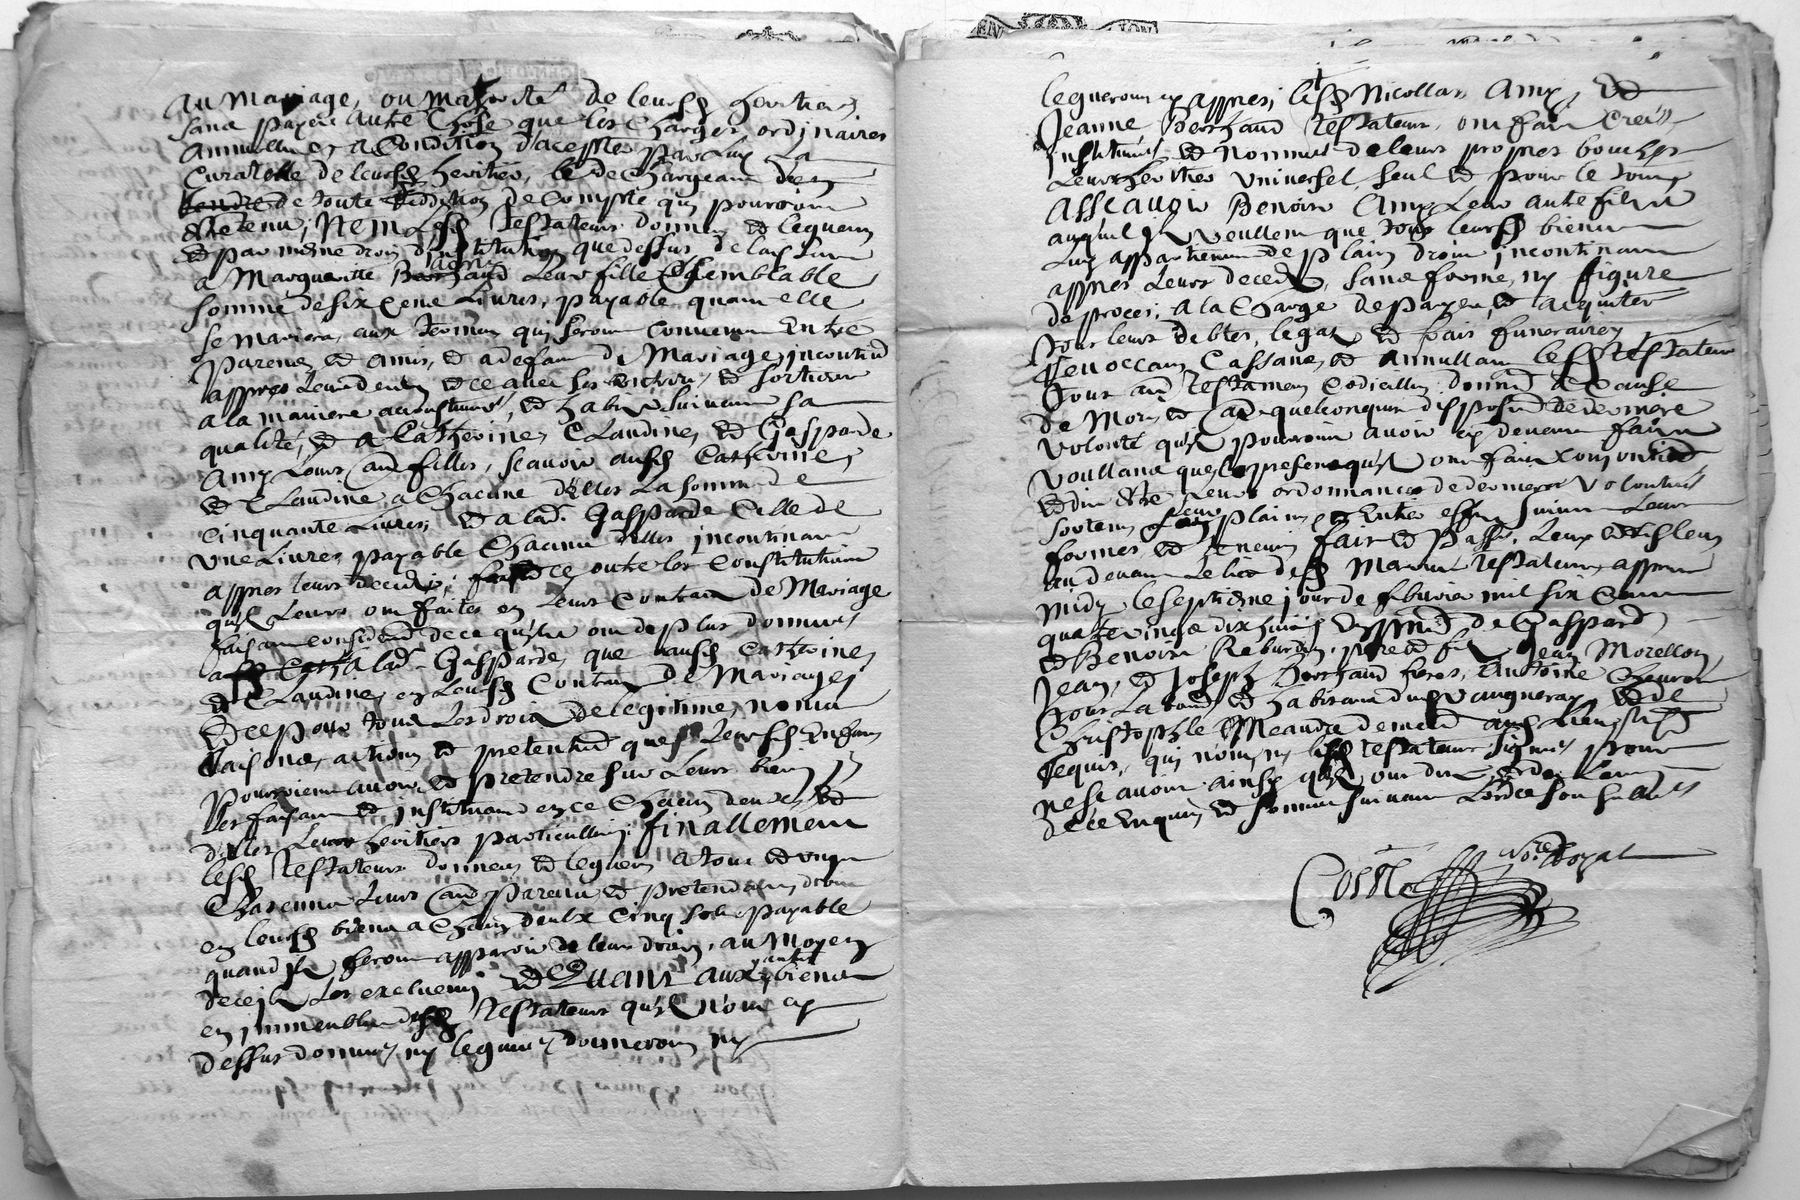 au mariage, ou majorité de leursd heritiers
sans payer autre chose que les charges ordinaires
annuelles et a condition d'accepter par luy la
curatelle de leursd heritier, le dechargeant de
rendre de toute reddition de compte qui pourroit
estre tenu; Item Lesd testateurs donnent et leguent
et par mesme droit d'institution que dessus delaissent
a Marguerite Leur fille semblable
somme de six cent Livres, payable quant elle
se mariera, aux termes qui seront convenus entre
parens et amis, et a defaut de Mariage incontinent
appres Leurd decedz et ce avec ses et sortie
a la maniere accoustumé, et habis suivant sa
qualité, et a Catherine, Claudine, et Gasparde
Amy Leurs aues filles, scavoir ausd Catherine,
et Claudine a chacune d'elles La somme de
cinquante Livres, et a lad. Gasparde celle de
une Livre, payable chacune d'elles incontinant
appres leurs decedz; et ce outre les constitutions
qu'ilz Leurs ont faites en Leurs contratz de Mariage
faisant consideraon de ce qu'ilz ont de plus donnés
a lad. Gasparde, que ausd Catherine,
et Claudine, en leursd Contratz de Mariages
et ce pour tous Les droitz de legitime, noms
raisons, actions et pretentions que Leursd enfans
pourroient avoir et pretendre sur Leurs biens
Les faisant et instituant en ce chacun d'eux et
d'elles Leurs heritiers particulliers; finallement
lesd Testateurs donnent et leguent a tous et ungs
chascuns Leurs aues parens et pretendans droit
en leursd biens a chacun d'eulx cinq solz payable
quand ilz feront apparoir de leur droitz, au moyen
de ce ilz Les excluent; Et Quant aux autres biens
en immeubles desd Testateurs qu'ilz n'ont cy
dessus donnés, ny legués, donneront ny
legueront cy appres; lesd Nicollas Amy, et
Jeanne Berthaud Testateurs, ont fait creés
institués et nommés de leurs propres bouches
Leur heritier universel, seul et pour le tout,
Asscavoir Benoist Amy Leur autre filz
auquel ilz veullent que tous leursd biens
Luy appartiennent de plain droit incontinant
appres Leurs decedz, sans forme, ny figure
de proces; a la charge de payer, et acquiter
tous leurs debtes, legatz et frais funeraires
revoccant, Cassant, et annullant lesd testateurs
tous aues testamens codicilles donnaons a cause
de Mort et aues quelconques dispositions de derniere
volonté qu'ilz pourroient avoir cy devant faites
voullans que le present qu'ilz ont fait
et dit estre Leurs ordonnances de derniere volontés
sortent leur plain, et entier effect suivant Leur
formes, et teneur, fait et passé,
au devant le lict desd Mariés testateurs appres
midy, le septiesme jour de febvrier mil six Cent
quatre vingt dix huict es presences de Gaspard,
et Benoist Rebordin, pere et filz, Jean Morellon,
Jean, et Joseph Berthaud freres, Antoine
tous Laboureurs et habitans dud Vaugneray, et de
Christophle Meaudre demeurant aud Lieu,
requis, qui n'ont ny lesd testateurs signés pour
ne scavoir ainsy qu'ilz ont dit,
de ce enquis, et sommés suivant L'ordce
Coste Nore Royal